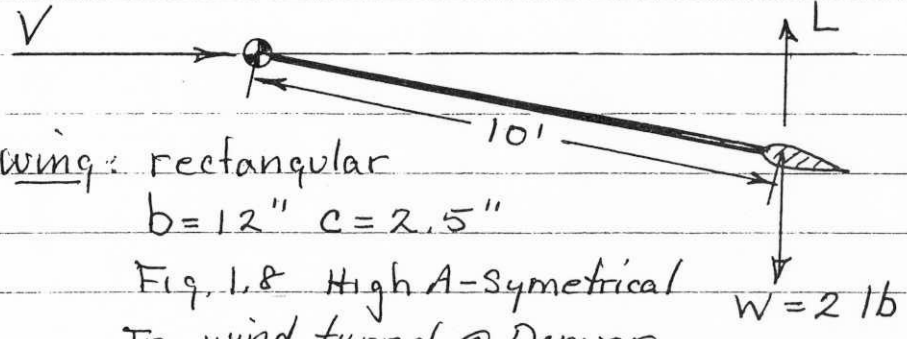 V
L
10'
wing: rectangular
b=12" c=2.5"
Fig. 1.8 High A-Symetrical
W=2 lb
In wind tunnel @ Denver